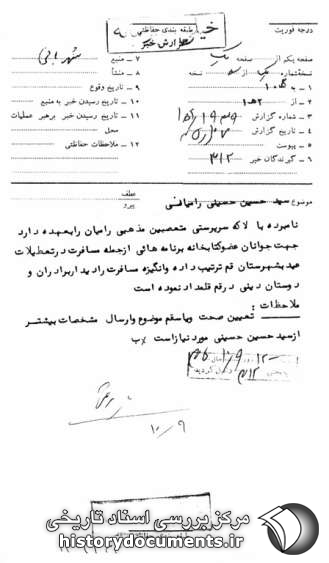 درجه فوریت
طبقه بندی حفاظتی
گزارش خبر
صفحه یکم از یک صفحه
نسخه شماره از نسخه
۱ - به
۲ - از ۱ه۲
۳ - شماره گزارش
۴ - تاریخ گزارش
۵ - پیوست
۶ - گیرندگان خبر ۳۱۲
۷ - منبع
۸ - منشأ
۹ - تاریخ وقوع
۱۰ - تاریخ رسیدن خبر به منبع
۱۱ - تاریخ رسیدن خبر برهبر عملیات
محل
۱۲ - ملاحظات حفاظتی
موضوع سید حسین حسینی رامیانی
عطف
پیرو
نامبرده بالا که سرپرستی متعصبین مذهبی رامیان را بعهده دارد
جهت جوانان عضو کتابخانه برنامه هائی از جمله مسافرت در تعطیلات
عید بشهرستان قم ترتیب داده و انگیزه مسافرت را دید از برادران و
دوستان دینی در قم قلمداد نموده است
ملاحظات :
تعیین صحت و یا سقم موضوع و ارسال مشخصات بیشتر
از سید حسین حسینی مورد نیاز است
۱۰/۹
مرکز بررسی اسناد تاریخی
historydocuments.ir